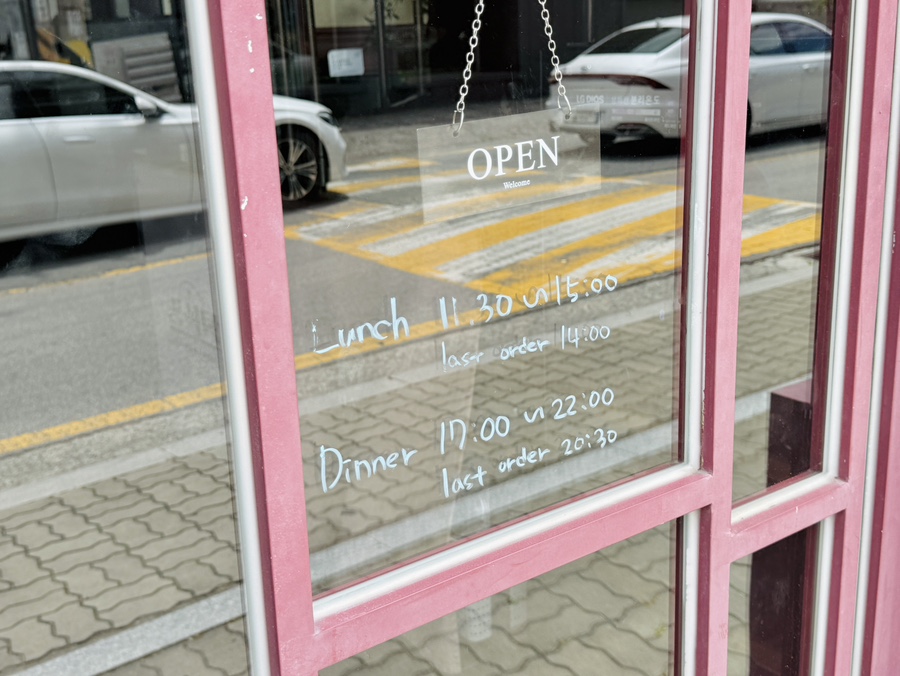 OPEN
Welcome
Lunch 11.30 ~ 15:00
last order 14:00
Dinner 17:00 ~ 22:00
last order 20:30